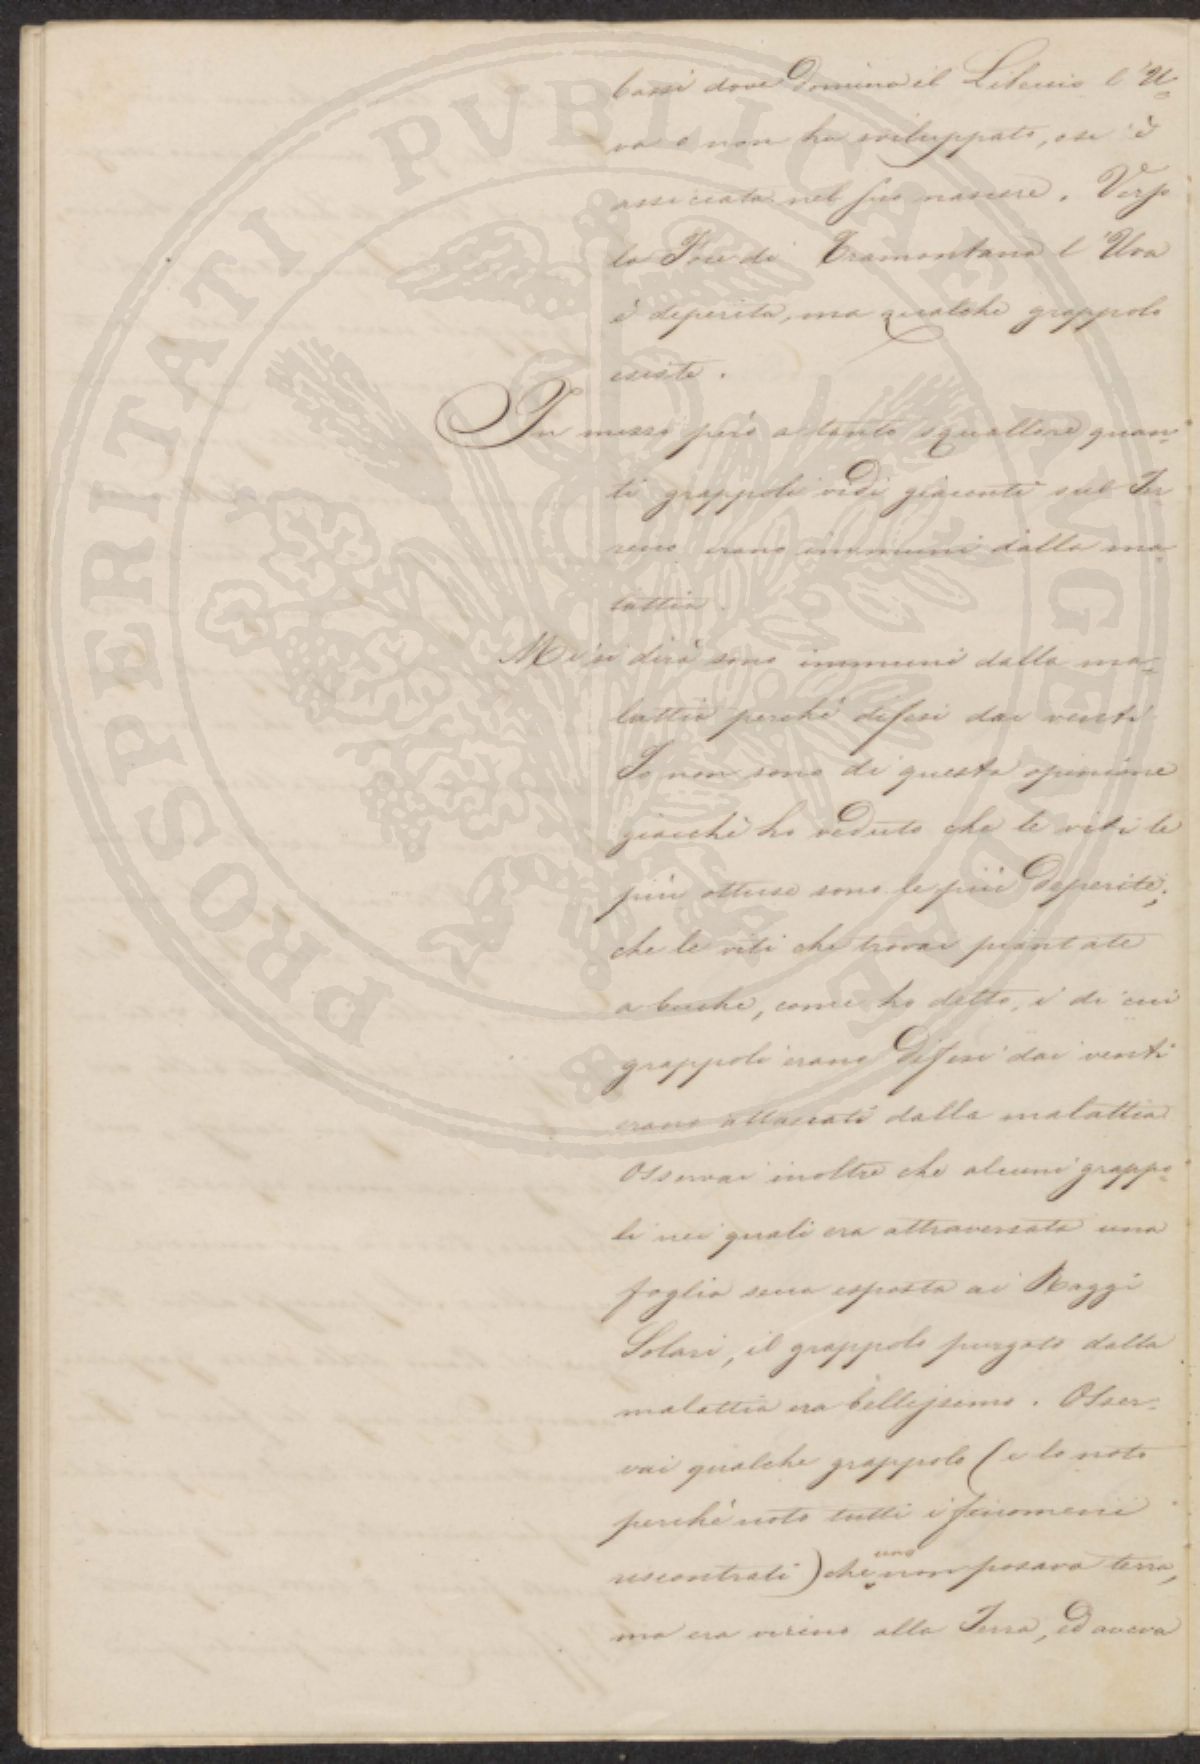 bassi dove domina il Libeccio l'U=
va o non ha sviluppato, o si è
assiccata nel suo nascere. Verso
la Foce di Tramontana l'Uva
è deperita, ma qualche grappolo
esiste.
In mezzo però a tanto squallore quan=
ti grappoli vidi giacenti sul Ter
reno erano immuni dalla ma=
lattia.
Mi si dirà sono immuni dalla ma=
lattia perché difesi dai venti
Io non sono di questa opinione
giacchè ho veduto che le viti le
più ottuse sono le più deperite;
che le viti che trovai piantate
a buche, come ho detto, i di cui
grappoli erano difesi dai venti
erano attaccati dalla malattia
Osservai inoltre che alcuni grappo=
li nei quali era attraversata una
foglia secca esposta ai Raggi
Solari, il grappolo purgato dalla
malattia era bellissimo. Osser=
vai qualche grappolo (e lo noto
perché noto tutti i fenomeni
riscontrati) che uno non posava terra,
ma era vicino alla Terra, ed aveva
PROSPERITATI PVBLICAE AVGENDAE